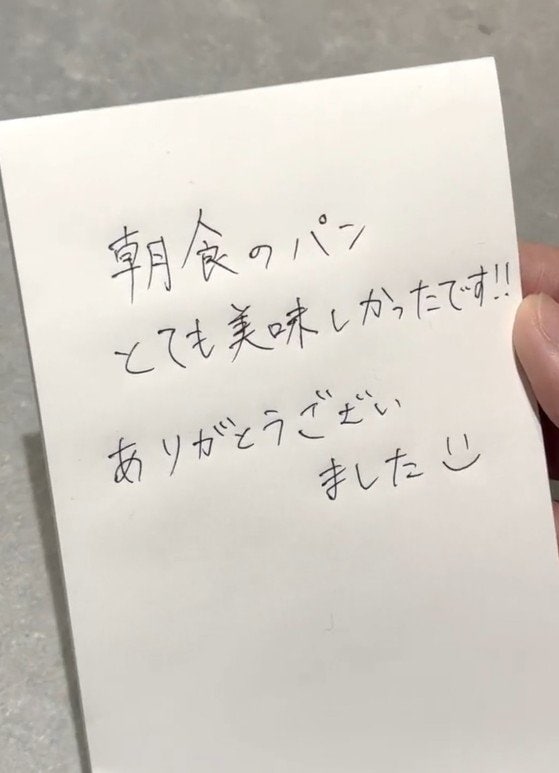 朝食のパン
とても美味しかったです!!
ありがとうございい
ました